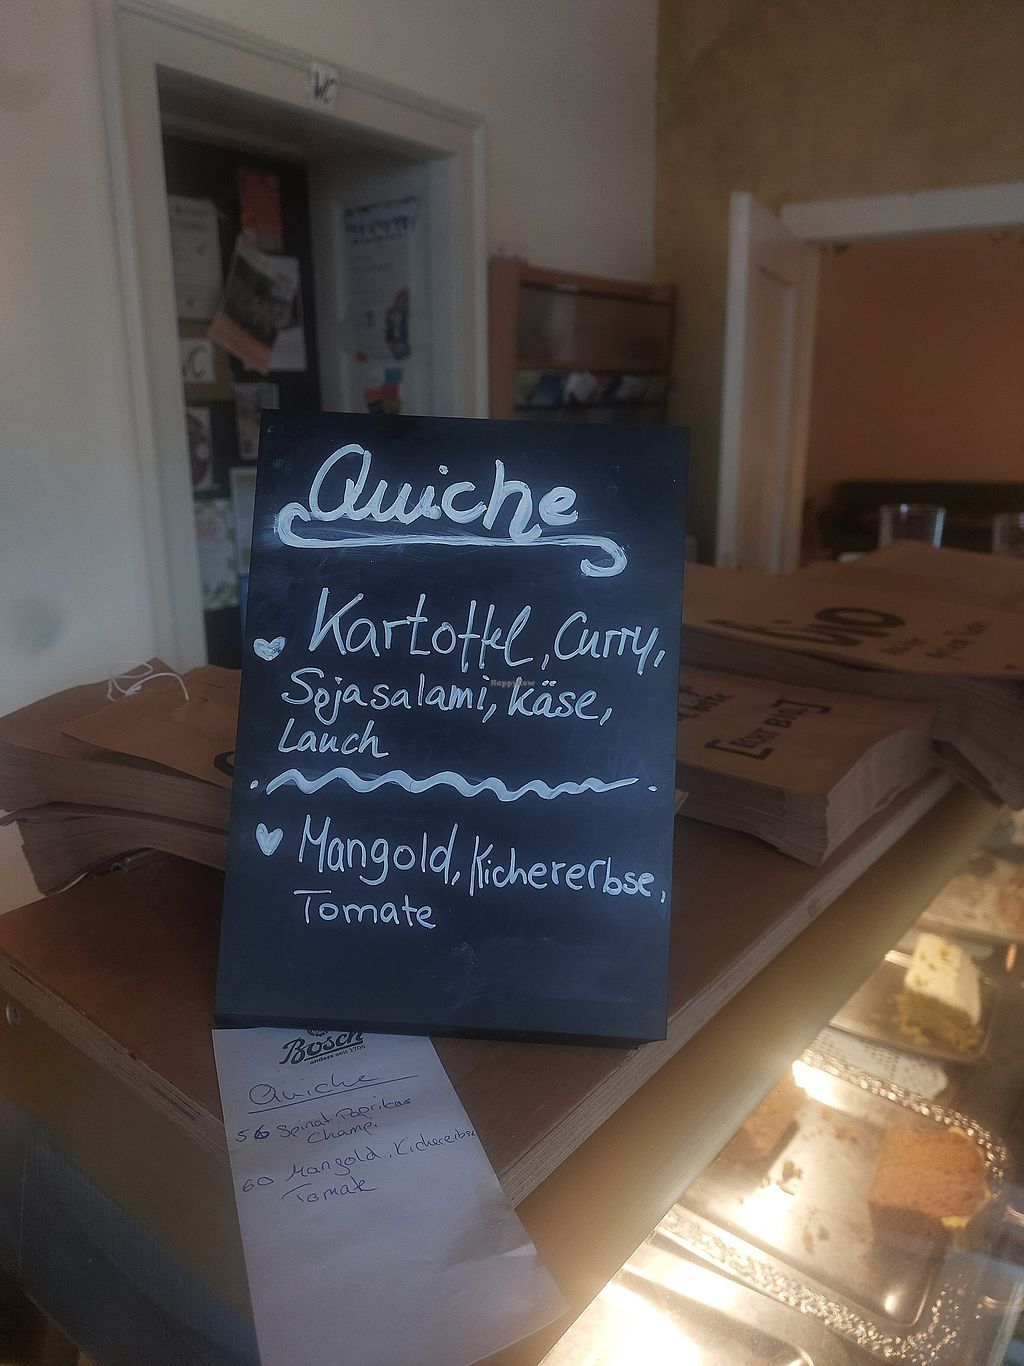 WC
WC
Quiche
Kartoffel, Curry,
Sojasalami, Käse,
Lauch
Mangold, Kichererbse,
Tomate
HappyCow
Bio
Bosch
anders seit 1705
Quiche
56 Spinat Paprika
Champ.
60 Mangold, Kichererbse
Tomate